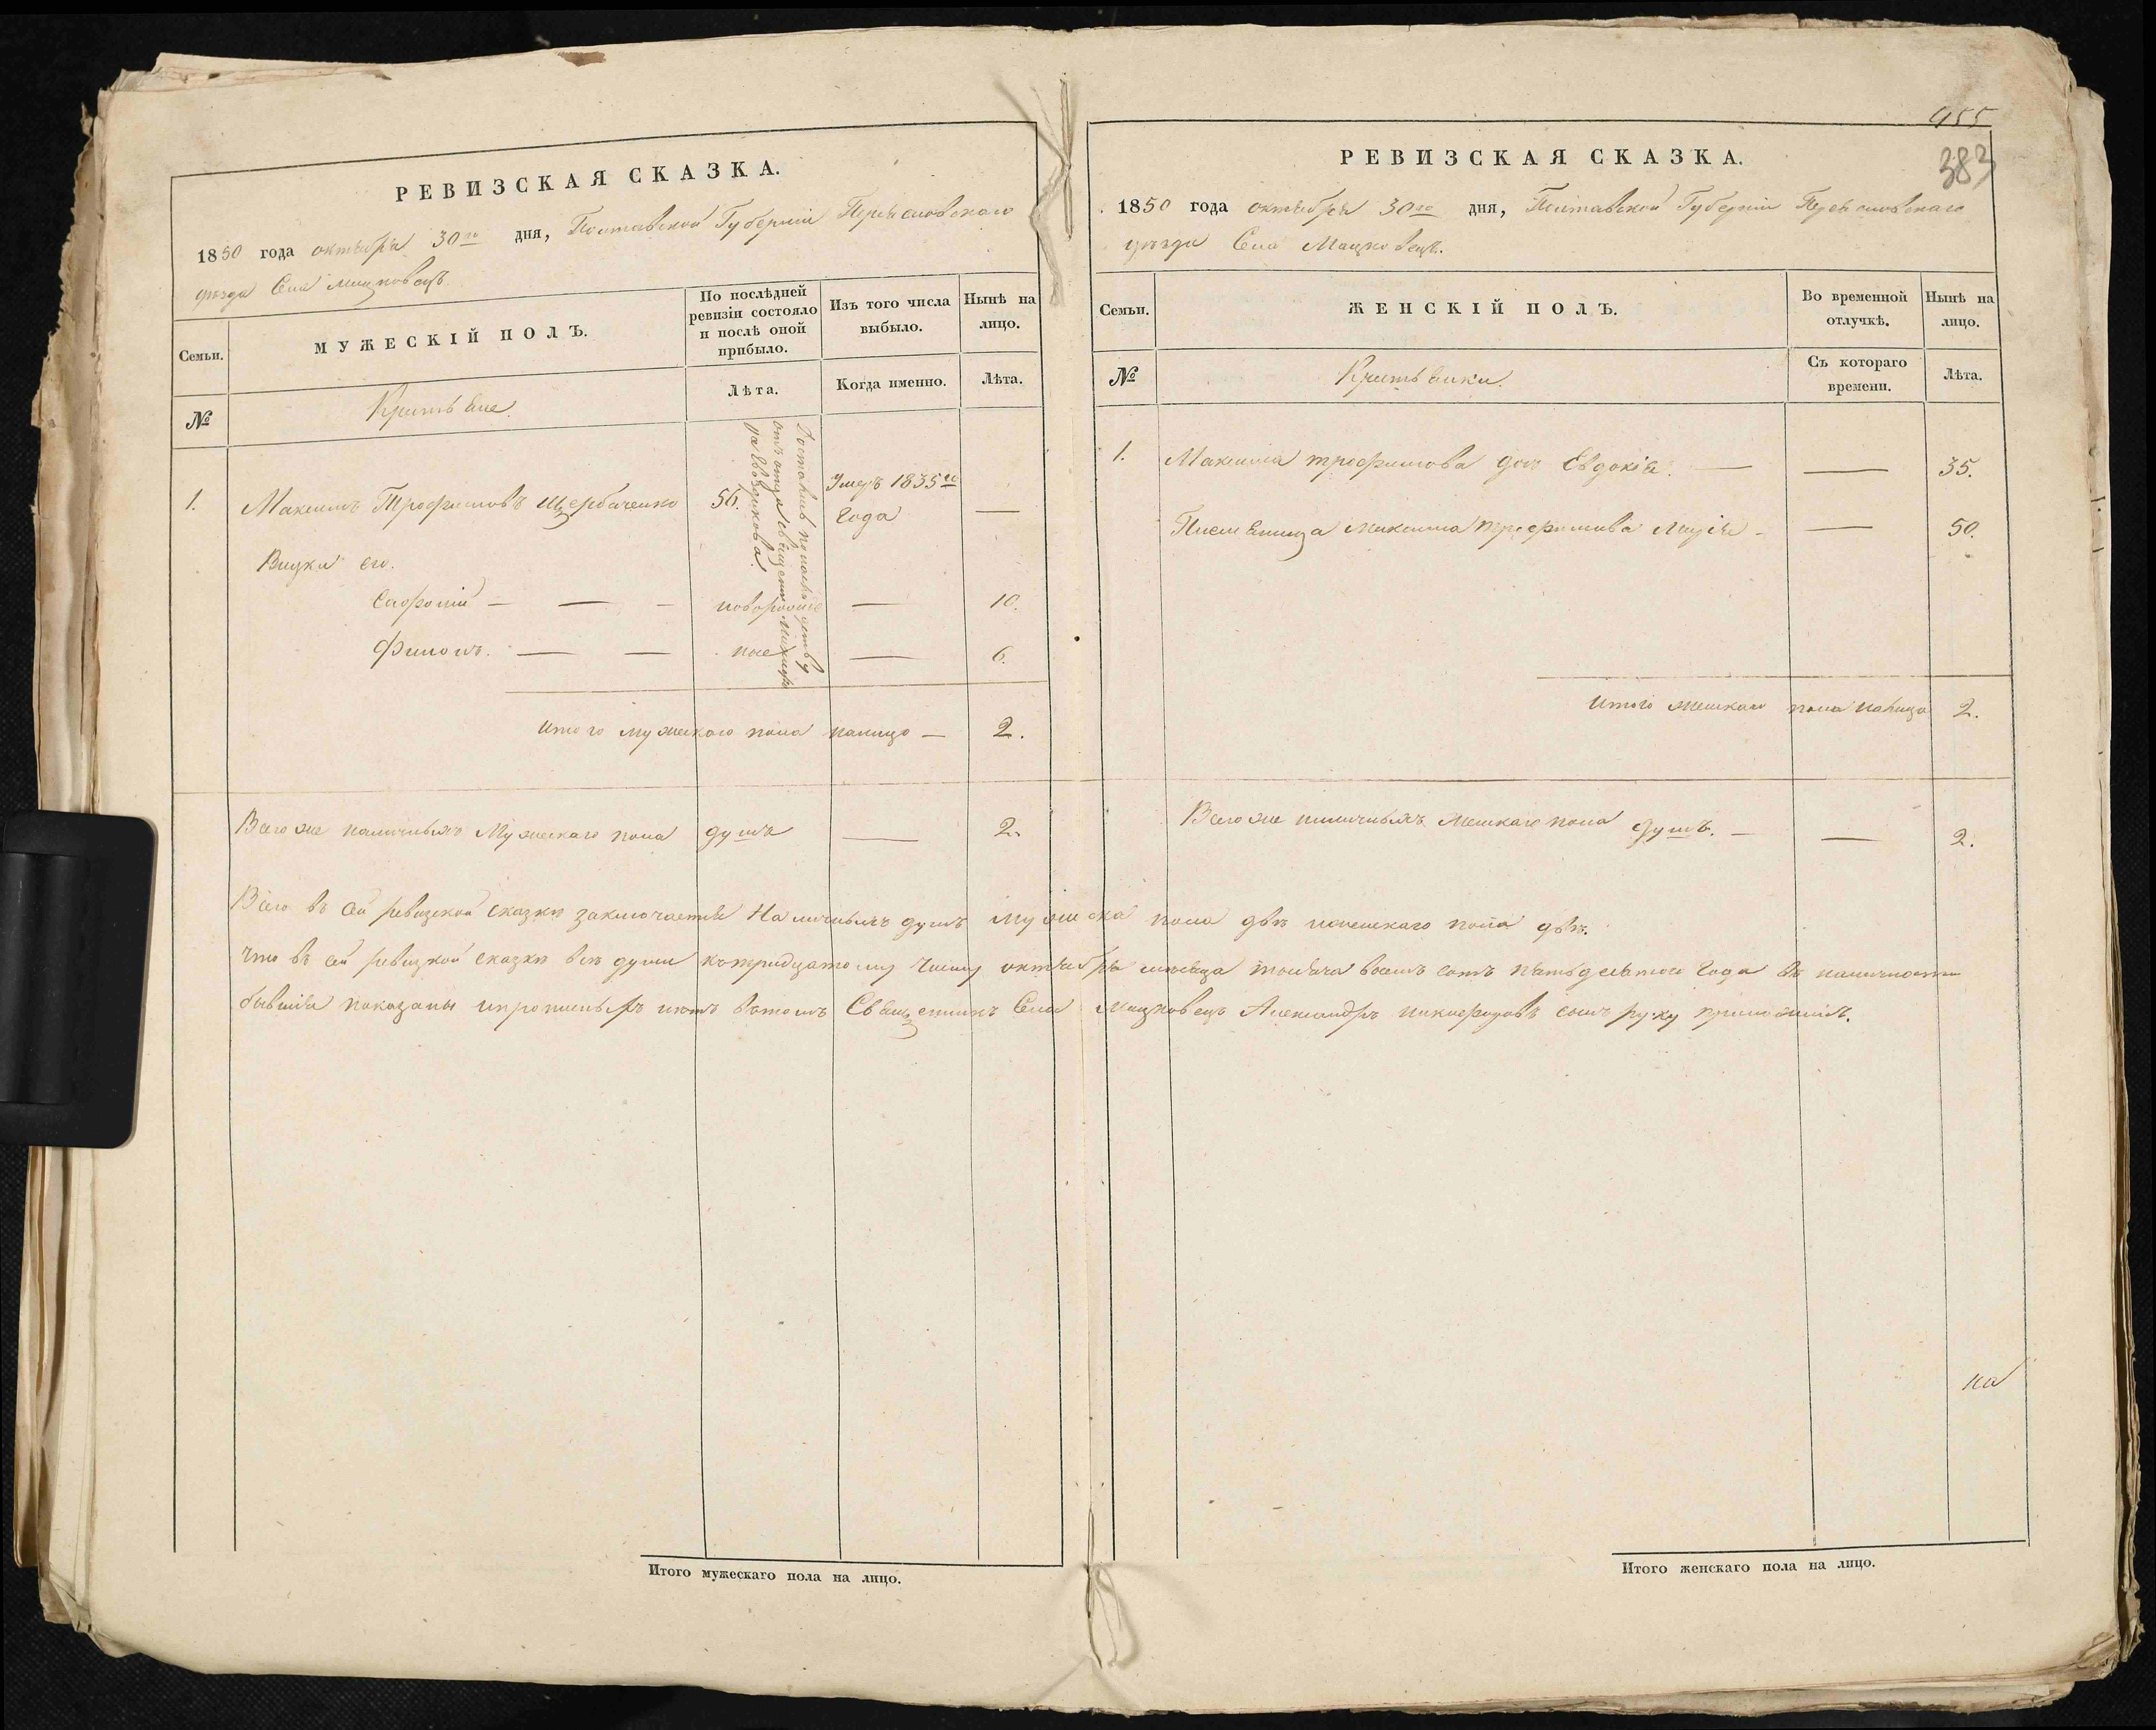 РЕВИЗСКАЯ СКАЗКА.
1850 года октября 30го дня, Полтавской Губернии Переясловскаго
уезда Села Мацковецъ
Семьи.
МУЖЕСКІЙ ПОЛЪ.
По послѣдней ревизіи состояло и послѣ оной прибыло.
Изъ того числа выбыло.
Нынѣ на лицо.
№
Крестьяне.
Лѣта.
Когда именно.
Лѣта.
Достались по наследству
отъ отца священника
разъездикова.
1. Максимъ Трофимовъ Щербаченко 56. Умеръ 1835го —
Года
Внуки его.
Сафроній — — — новорож — 10.
Филопъ. — — ные — 6.
Итого мужескаго пола налицо — 2.
Всего же наличныхъ Мужескаго пола душъ — 2.
955
383
РЕВИЗСКАЯ СКАЗКА.
1850 года октября 30го дня, Полтавской Губерніи Переясловскаго
уезда Села Мацковецъ.
Семьи.
ЖЕНСКІЙ ПОЛЪ.
Во временной отлучкѣ.
Нынѣ на лицо.
№
Крестьянки.
Съ котораго времени.
Лѣта.
1. Максима трофимова дочь Евдокія — — 35.
Племянница Максима трофимова Марія - — 50.
Итого женскаго пола налицо 2.
Всего же наличныхъ женскаго пола душъ. — — 2.
Всего въ сей ревизской сказки заключается Наличныхъ душъ мужеска пола двѣ и женскаго пола двѣ.
Что въ сей ревизкой сказки всѣ души къ тридцатому Числу октября месяца тысяча восемъ сотъ пятьдесятого Года въ наличности
бывшія показаны и прописныхъ нѣтъ въ томъ Священникъ Села Мацковецъ Александръ никифоровъ сынъ руку приложилъ.
на
Итого мужескаго пола на лицо.
Итого женскаго пола на лицо.